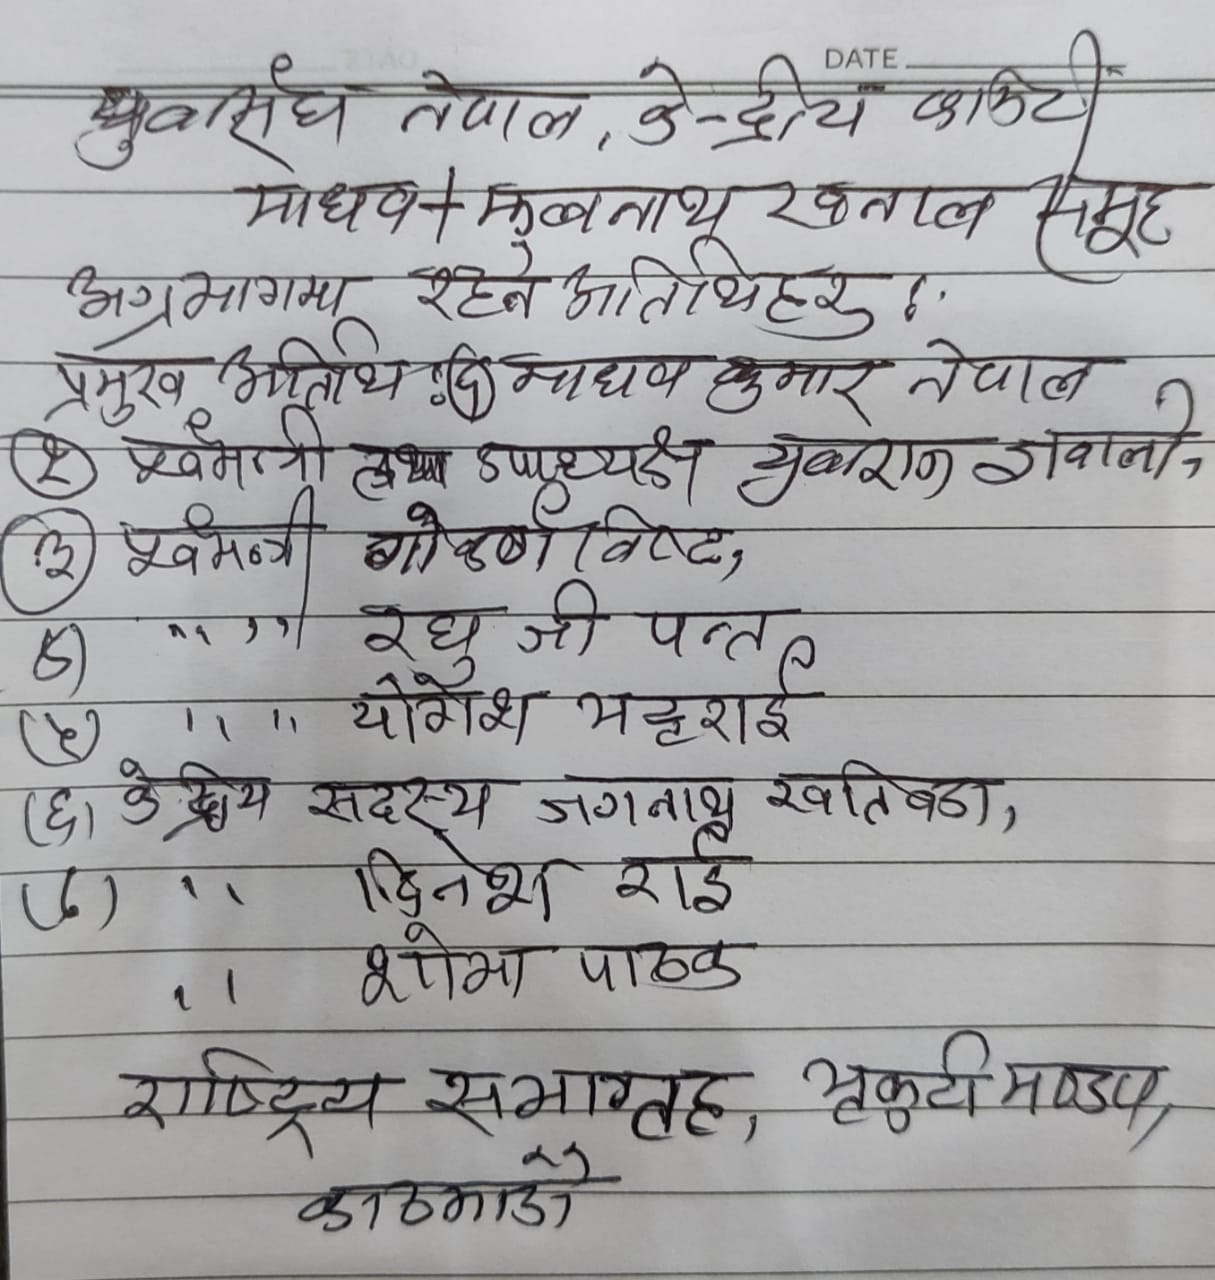 DATE
युवासंघ नेपाल, केन्द्रीय कमिटी
माधव + झलनाथ खनाल समूह
अग्रभागमा रहने अतिथिहरु :
प्रमुख अतिथि : (१) माधव कुमार नेपाल
(२) पूर्वमन्त्री तथा उपाध्यक्ष युवराज ज्ञवाली,
(३) पूर्वमन्त्री गोकर्ण विष्ट,
४) " " रघु जी पन्त
(५) " " योगेश भट्टराई
(६) केन्द्रीय सदस्य जगनाथ खतिवडा,
(७) " दिनेश राई
" शोभा पाठक
राष्ट्रिय सभागृह, भृकुटी मण्डप,
काठमाडौं